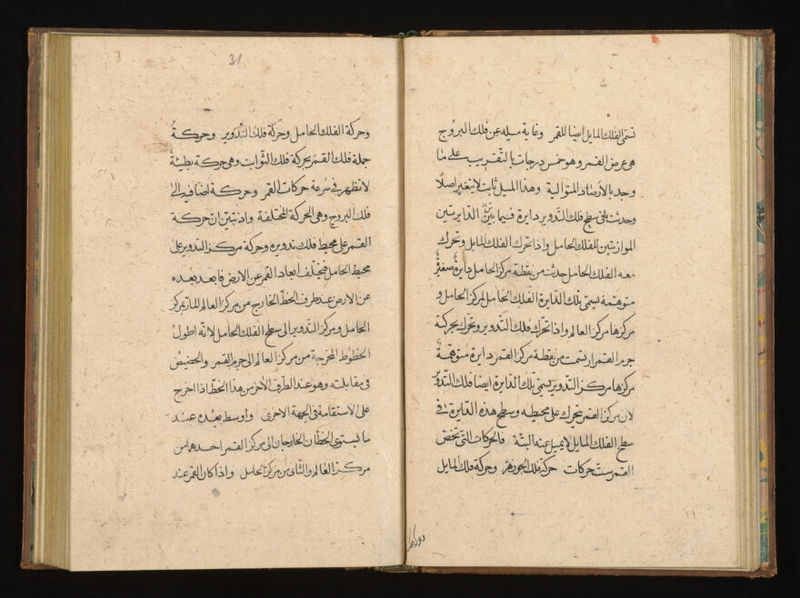 تسمى الفلك المايل ايضا للقمر وغاية ميله عن فلك البروج
هى عرض القمر وهو خمس درجات بالتقريب على ما
وجد بالارصاد المتوالية وهذا الميل ثابت لا يتغير اصلا
وحدث على سطح فلك التدوير دايرة فيما بين الدايرتين
الموازنتين للفلك الحامل واذا تحرك الفلك المايل وتحرك
معه الفلك الحامل حدث من نقطة مركز الحامل دايرة صغيرة
متوهمة يسمى بتلك الدايرة الفلك الحامل لمركز الحامل و
مركزها مركز العالم واذا تحرك فلك التدوير وتحرك بحركته
جرم القمر ارتسمت من نقطة مركز القمر دايرة متوهمة
مركزها مركز التدوير يسمى بتلك الدايرة ايضا فلك التدوير
لان مركز القمر يتحرك على محيطه وسطح هذه الدايرة فى
سطح الفلك المايل لا يميل عنه البتة فالحركات التى تخص
القمر ست حركات حركة فلك الجوزهر وحركة فلك المايل
31
وحركة الفلك الحامل وحركة فلك التدوير وحركة
جملة فلك القمر بحركة فلك الثوابت وهى حركة بطيئة
لا تظهر فى سرعة حركات القمر وحركة اضافية الى
فلك البروج وهى الحركة المختلفة واذ تبين ان حركة
القمر على محيط فلك تدويره وحركة مركز التدوير على
محيط الحامل فيختلف ابعاد القمر عن الارض فابعد بعده
عن الارض عند طرف الخط الخارج من مركز العالم المار بمركز
الحامل ومركز التدوير الى سطح الفلك الحامل لانه اطول
الخطوط المخرجة من مركز العالم الى جرم القمر والحضيض
فى مقابلته وهو عند الطرف الاخر من هذا الخط اذا اخرج
على الاستقامة فى الجهة الاخرى واوسط بعده عند
ما يستوى الخطان الخارجان الى مركز القمر احدهما من
مركز العالم والثانى من مركز الحامل واذا كان القمر عند